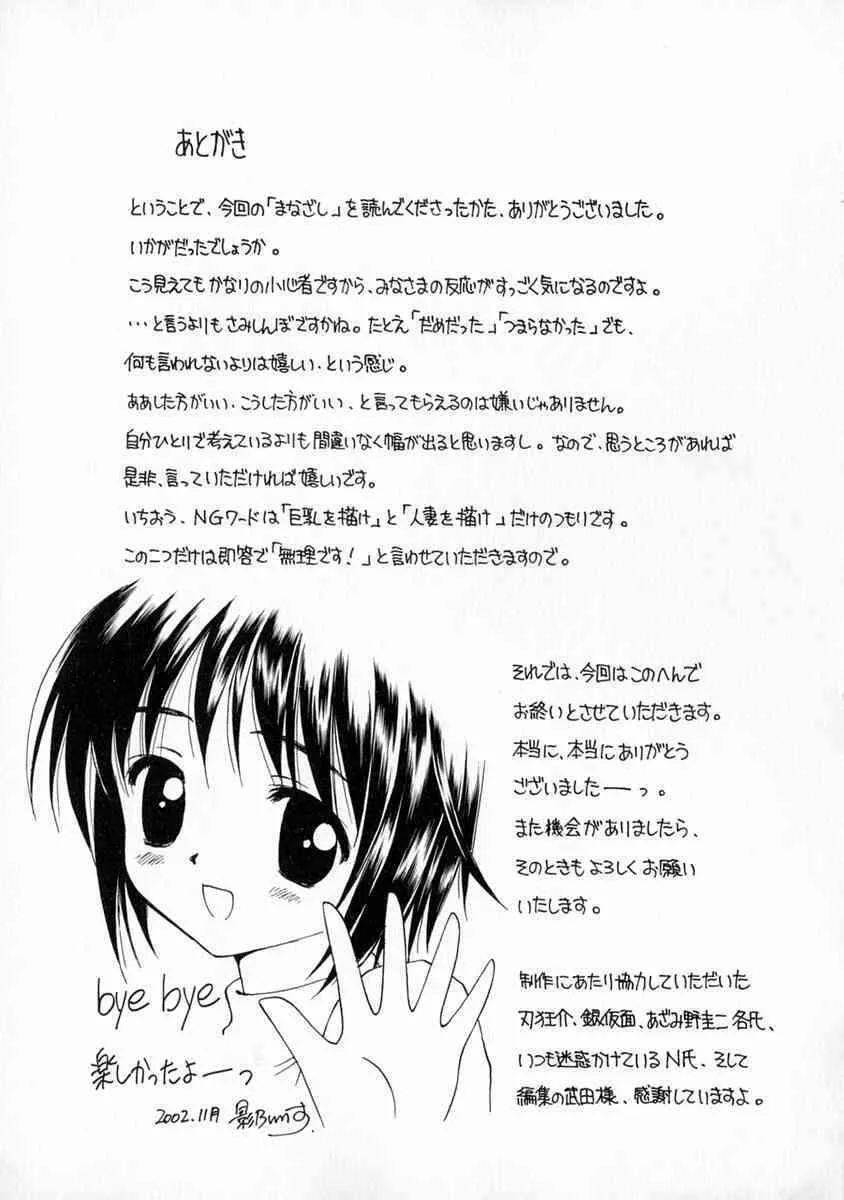 あとがき
ということで、今回の「まなざし」を読んでくださったかた、ありがとうございました。
いかがだったでしょうか。
こう見えてもかなりの小心者ですから、みなさまの反応がすっごく気になるのですよ。
…と言うよりもさみしんぼですかね。たとえ「だめだった」「つまらなかった」でも、
何も言われないよりは嬉しい、という感じ。
ああした方がいい、こうした方がいい、と言ってもらえるのは嫌いじゃありません。
自分ひとりで考えているよりも間違いなく幅が出ると思いますし。なので、思うところがあれば
是非、言っていただければ嬉しいです。
いちおう、NGワードは「巨乳を描け」と「人妻を描け」だけのつもりです。
この二つだけは即答で「無理です!」と言わせていただきますので。
それでは、今回はこのへんで
お終いとさせていただきます。
本当に、本当にありがとう
ございましたーっ。
また機会がありましたら、
そのときもよろしくお願い
いたします。
制作にあたり協力していただいた
刃狂介、銀仮面、あざみ野圭二各氏、
いつも迷惑かけているN氏、そして
編集の武田様、感謝していますよ。
bye bye
楽しかったよーっ
2002.11月 影Bunす